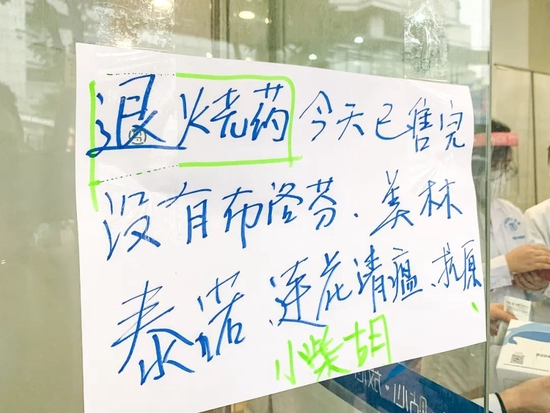 退烧药今天已售完
没有布洛芬、美林
泰诺 莲花清瘟、抗原
小柴胡